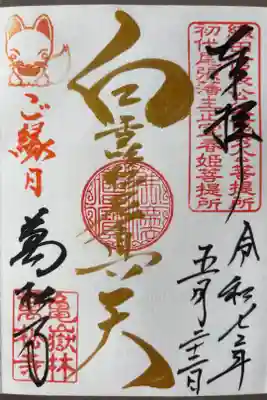 奉拝
初代尾張藩主正室春姫菩提所
令和七年
五月二十二日
白雪吒枳尼真天
ご縁日
萬松寺
亀嶽林
萬松寺